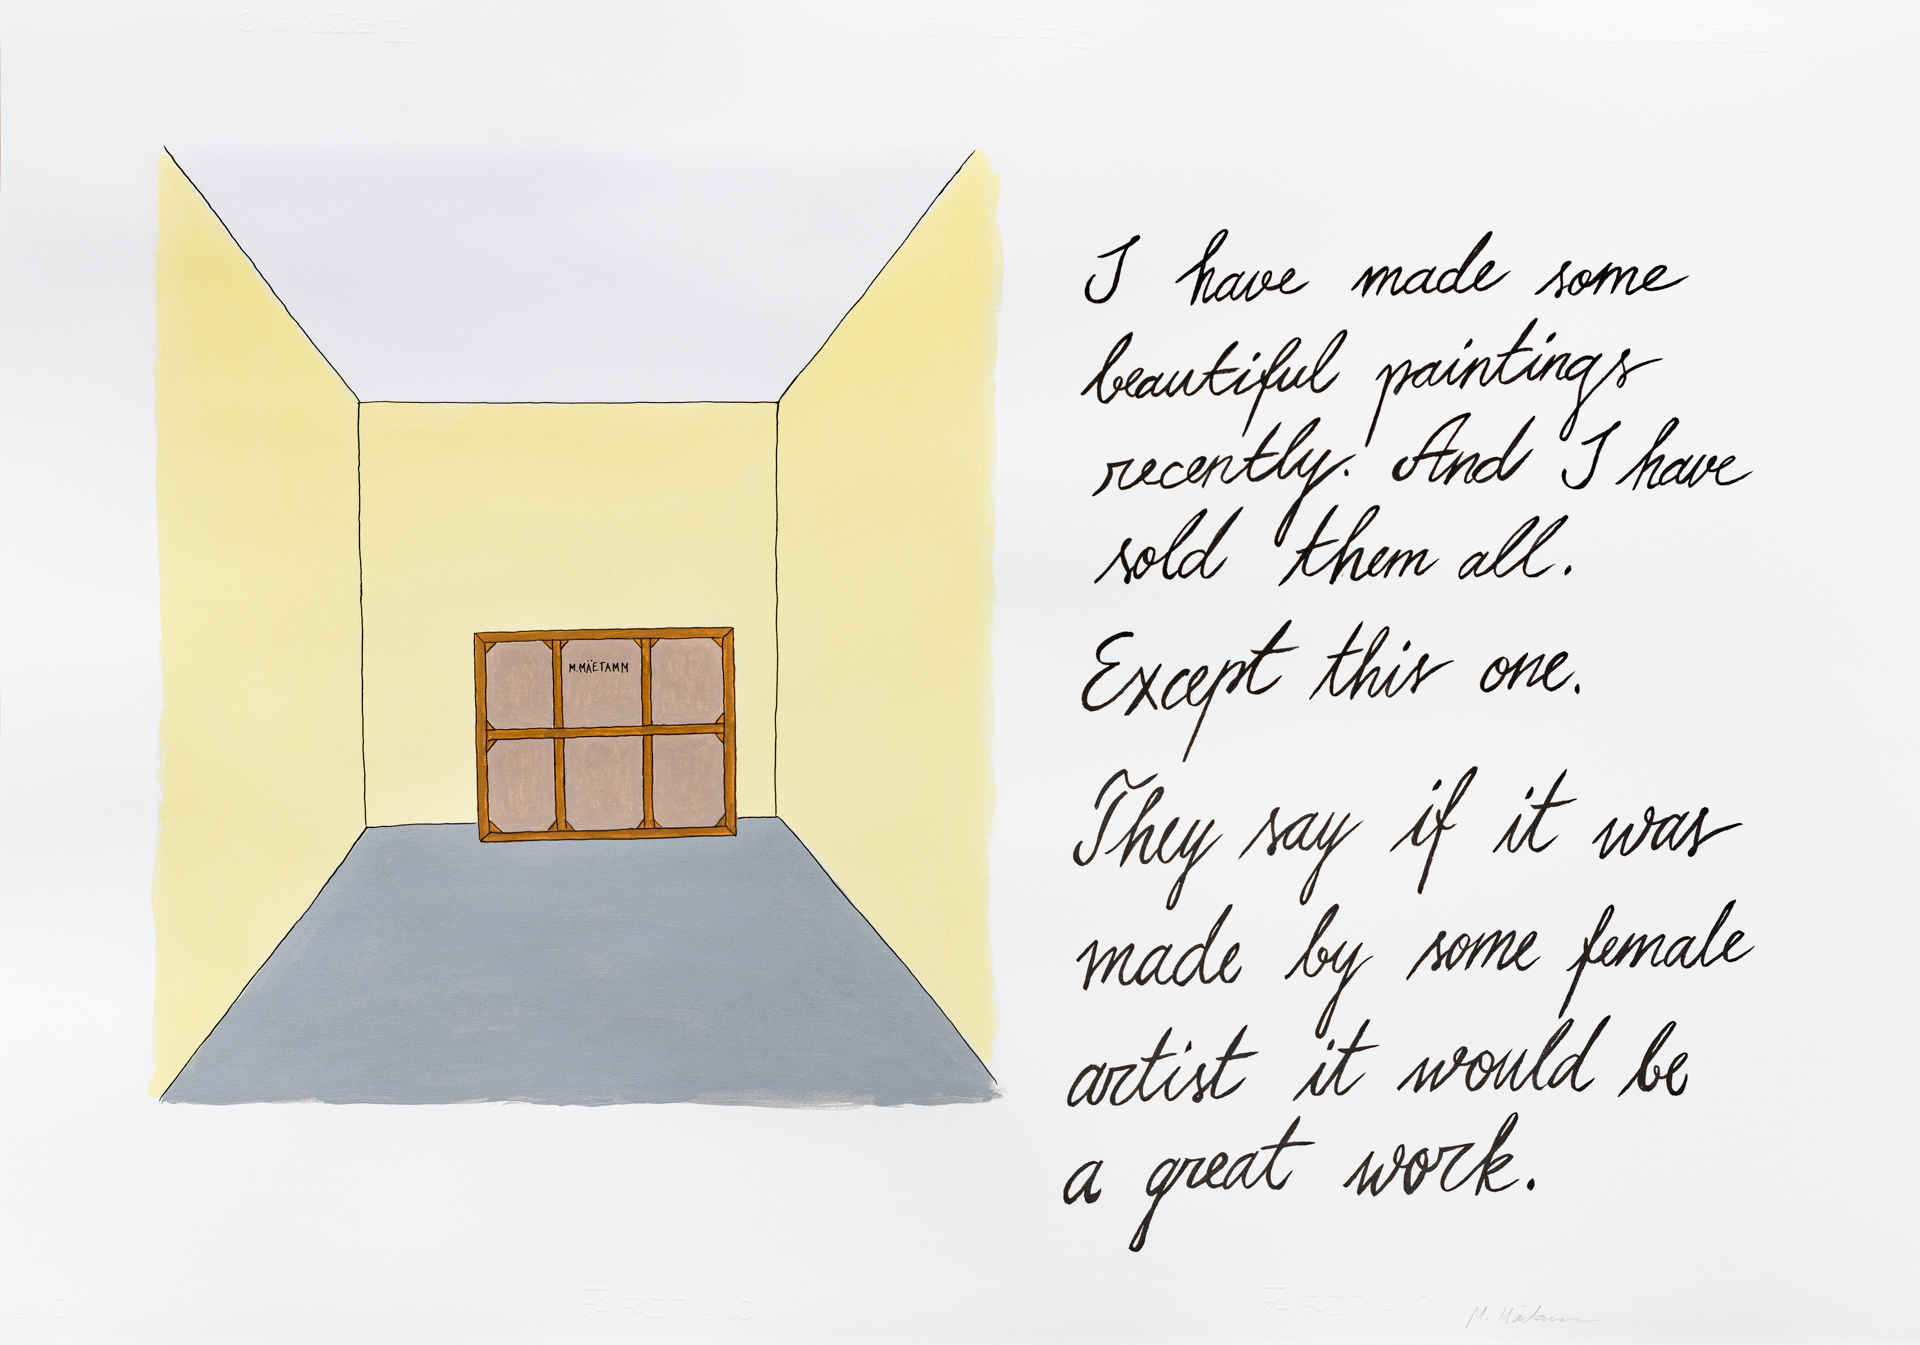 FABRIANO
FABRIANO
FABRIANO
M.MÄETAMM
I have made some
beautiful paintings
recently. And I have
sold them all.
Except this one.
They say if it was
made by some female
artist it would be
a great work.
ANO
FABRIANO
FABRIANO
M. Mäetamm